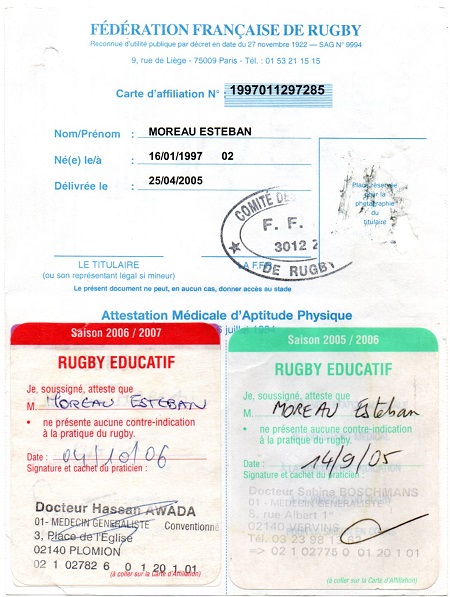 FÉDÉRATION FRANÇAISE DE RUGBY
Reconnue d'utilité publique par décret en date du 27 novembre 1922 — SAG N° 9994
9, rue de Liège - 75009 Paris - Tél. : 01 53 21 15 15
Carte d'affiliation N° : 1997011297285
Nom/Prénom : MOREAU ESTEBAN
Né(e) le/à : 16/01/1997 02
Délivrée le : 25/04/2005
Place réservée
pour la
photographie
du
titulaire
COMITÉ DES
F. F.
3012 2
DE RUGBY
LE TITULAIRE
(ou son représentant légal si mineur)
LA F.F.R.
Le présent document ne peut, en aucun cas, donner accès au stade
Attestation Médicale d'Aptitude Physique
juillet
Saison 2006 / 2007
RUGBY EDUCATIF
Je, soussigné, atteste que
M. MOREAU ESTEBAN
• ne présente aucune contre-indication
à la pratique du rugby.
Date : 04/10/06
Signature et cachet du praticien :
Docteur Hassan AWADA
01- MEDECIN GENERALISTE Conventionné
3, Place de l'Eglise
02140 PLOMION
02 1 02782 6 0 1 20 1 01
(à coller sur la Carte d'Affiliation)
Saison 2005 / 2006
RUGBY EDUCATIF
Je, soussigné, atteste que
M. MOREAU Esteban
• ne présente aucune contre-indication
à la pratique du rugby.
Date : 14/9/05
Signature et cachet du praticien :
Docteur Sabine BOSCHMANS
01- MEDECIN GENERALISTE
8, rue Albert 1°
02140 VERVINS
Tél. 03 23 98
=> 02 1 02775 0 01 20 1 01
(à coller sur la Carte d'Affiliation)